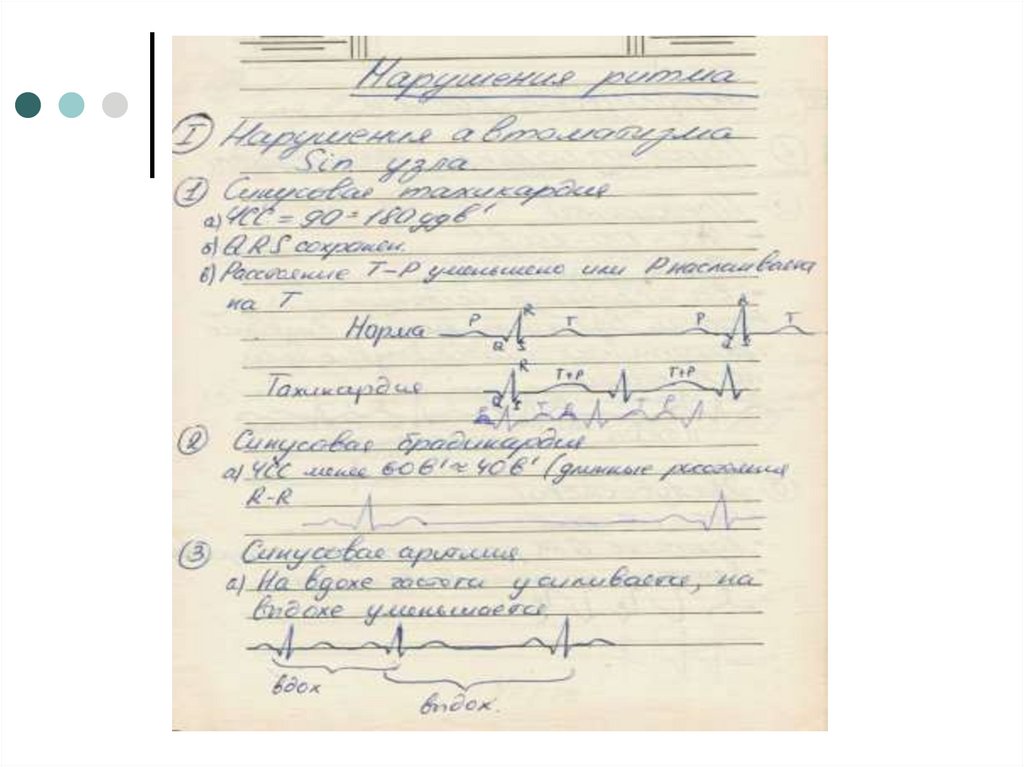 Нарушения ритма
I Нарушения автоматизма
Sin узла
1 Синусовая тахикардия
а) ЧСС = 90 - 180 уд в 1'
б) QRS сохранен.
в) Расстояние T-P уменьшено или P наслаивается
на T
Норма P Q R S T P Q R S T
Тахикардия Q R S T+P T+P
T P T P
2 Синусовая брадикардия
а) ЧСС менее 60 в 1' ≈ 40 в 1' (длинные расстояния
R-R
3 Синусовая аритмия
а) На вдохе частота усиливается, на
выдохе уменьшается
вдох
выдох.